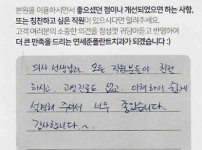 본원을 이용하시면서 좋으셨던 점이나 개선되었으면 하는 사항,
또는 칭찬하고 싶은 직원이 있으시다면 알려주세요.
고객 여러분의 소중한 의견을 정성껏 귀담아듣고 반영하여
더 큰 만족을 드리는 연세준플란트치과가 되겠습니다 :)
의사 선생님과 모든 직원분들이 친절
하시고 과잉진료도 없고 이해하기 쉽게
설명해 주셔서 너무 좋았습니다.
감사합니다.